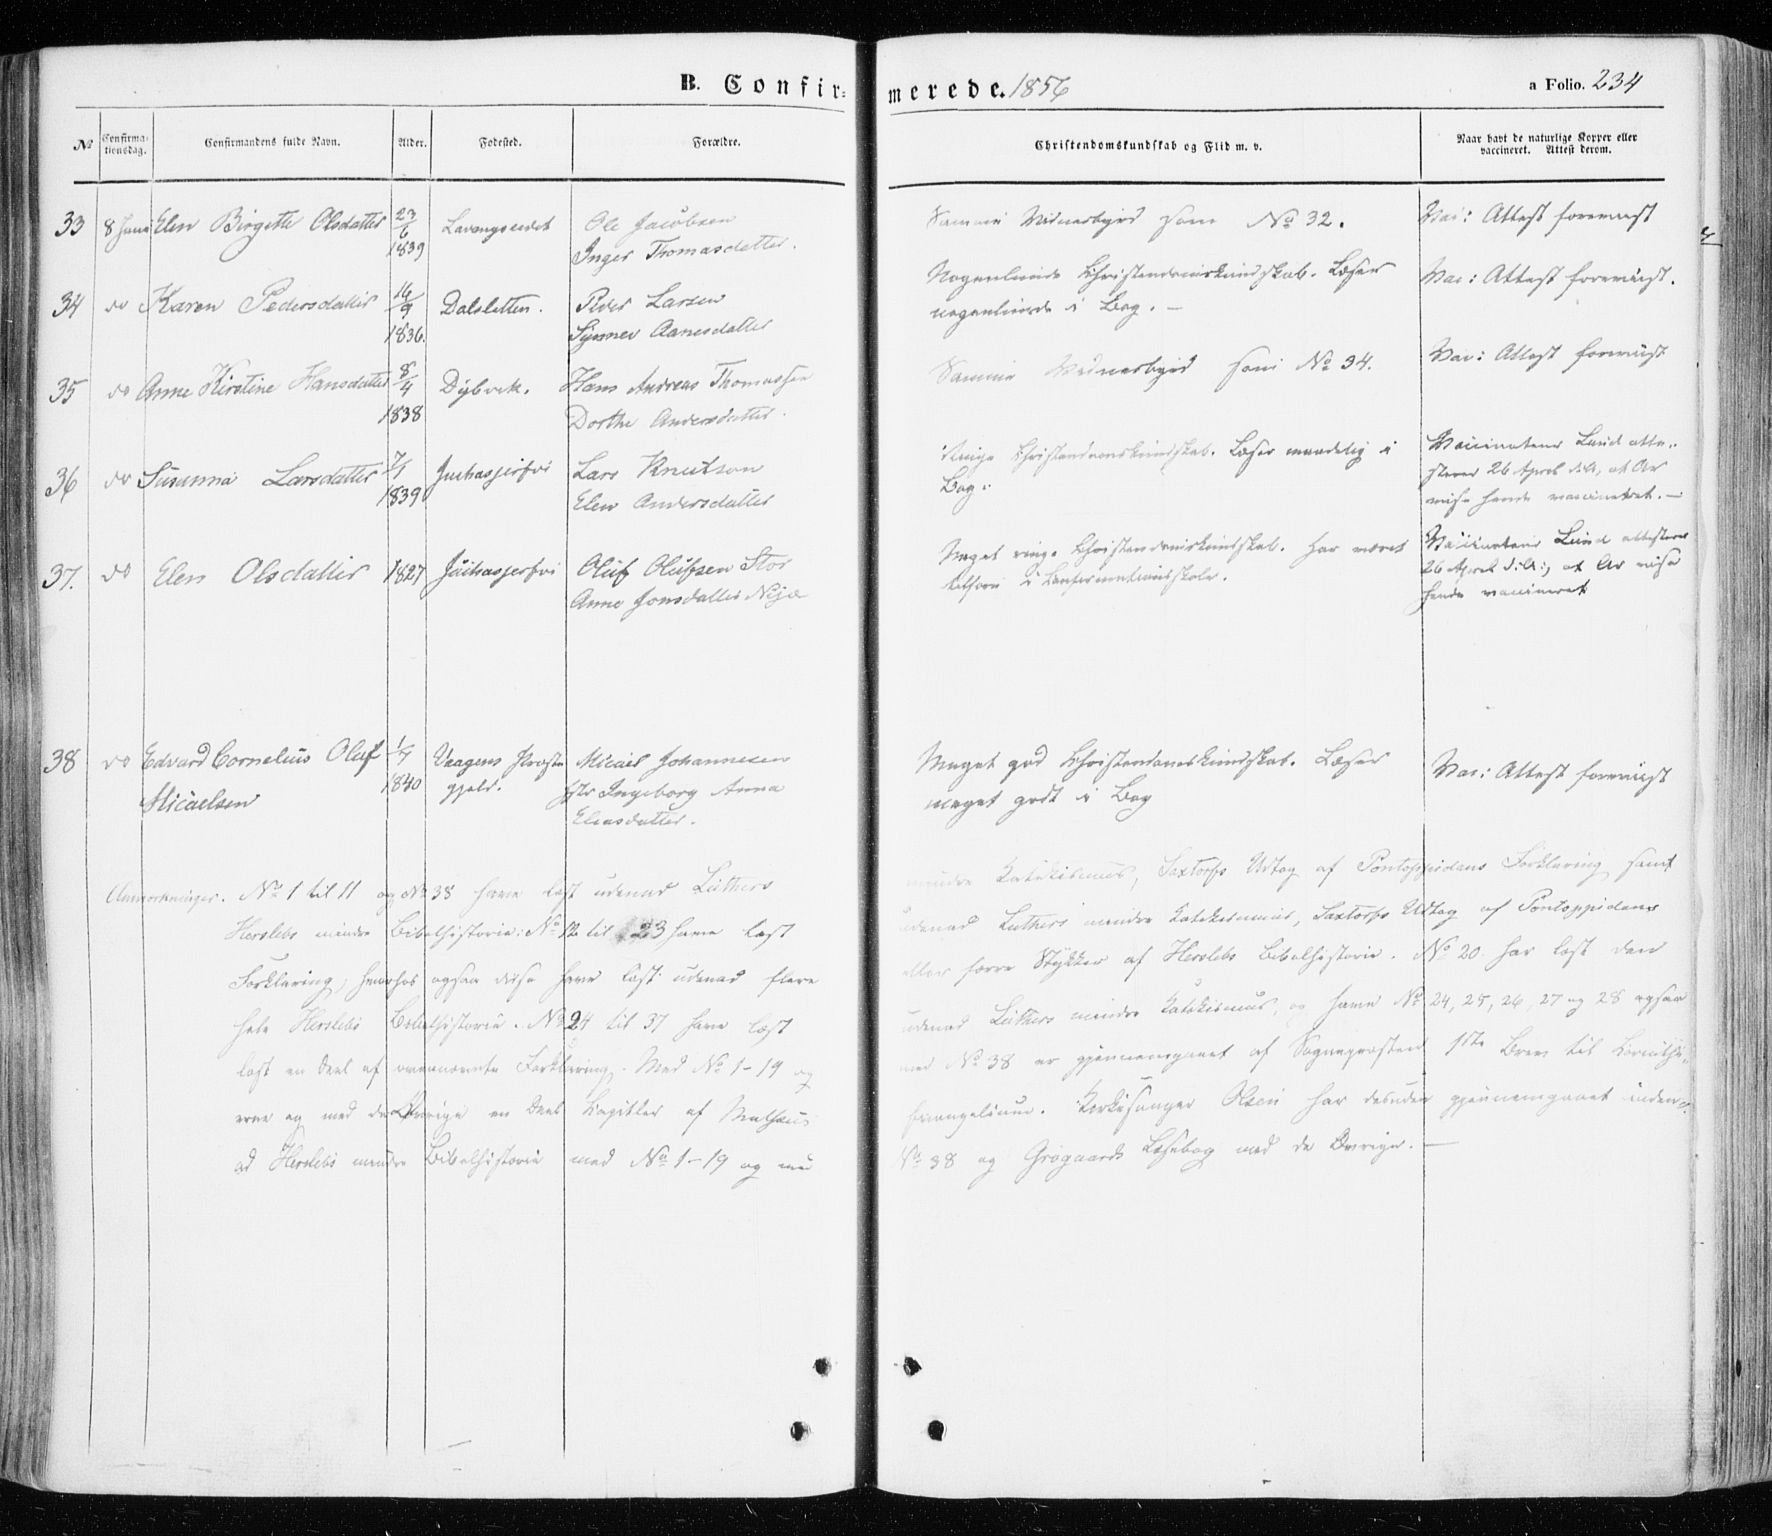 B. Confir-
merede. 1856
a Folio. 234
No
Confirma-
tionsdag.
Confirmandens fulde Navn.
Alder.
Fødested.
Forældre.
Christendomskundskab og Flid m. v.
Naar havt de naturlige Kopper eller
vaccineret. Attest derom.
33 8 Juni Elen Birgitte Olsdatter 23/6 1839
Ole Jacobsen
Inger Thomasdatter.
Samme Vidnesbyrd som No 32.
Vac: Attest foreviist
34 do Karen Pedersdatter 16/9 1836. Dalsletten.
Peder Larsen
Synnev Aanesdatter
Nogenlunde Christendomskundskab. Læser
nogenlunde i Bog. -
Vac: Attest foreviist.
35 do Anne Kirstine Hansdatter 8/4 1838 Dybvik.
Hans Andreas Thomassen
Dorthe Andersdatter.
Samme Vidnesbyrd som No 34.
Vac: Attest foreviist
36 do Susanna Larsdatter 7/1 1839
Lars Knutson
Elen Andersdatter
Ringe Christendomskundskab. Læser maadelig i
Bog.
Vaccinateur Lund atte-
sterer 26 April d.A., at Ar
vise hende vaccineret. -
37. do Elen Olsdatter 1827
Oluf Olufsen Stor
Anne Jonsdatter
Meget ringe Christendomskundskab. Har været
tilforn i Confirmationsskole.
Vaccinateur Lund attesterer
26 April d.A., at Ar vise
hende vaccineret
38 do Edvard Cornelius Oluf 1/4 1840
Micaelsen
Vaagens Præste
gjeld.
Micael Johannesen
Ingeborg Anna
Eliasdatter.
Meget god Christendomskundskab. Læser
meget godt i Bog
Vac: Attest foreviist
Anmærkninger. No 1 til 11 og No 38 have læst udenad Luthers
mindre Katekismus, Saxtorfs Udtog af Pontoppidans Forklaring samt
Herslebs mindre Bibelhistorie: No 12 til 23 have læst
udenad Luthers mindre Katekismus, Saxtorfs Udtog af Pontoppidans
Forklaring, hvorhos ogsaa disse have læst udenad flere
eller færre Stykker af Herslebs Bibelhistorie. No 20 har læst den
hele Herslebs Bibelhistorie. No 24 til 37 have læst
udenad Luthers mindre Katekismus, og have No 24, 25, 26, 27 og 28 ogsaa
læst en Deel af ovennævnte Forklaring. Med No 1-19 og
med No 38 er gjennemgaaet af Sognepræsten 1ste Brev til Corinthi-
erne og med de Øvrige en Deel Capitler af Mathæus
Evangelium. Kirkesanger har desuden gjennemgaaet inden-
ad Herslebs mindre Bibelhistorie med No 1-19 og med
No 38 og Grøgaards Læsebog med de Øvrige. -